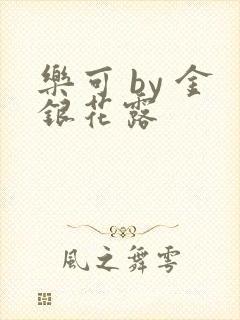 樂可 by 金
銀花露
風之舞雩